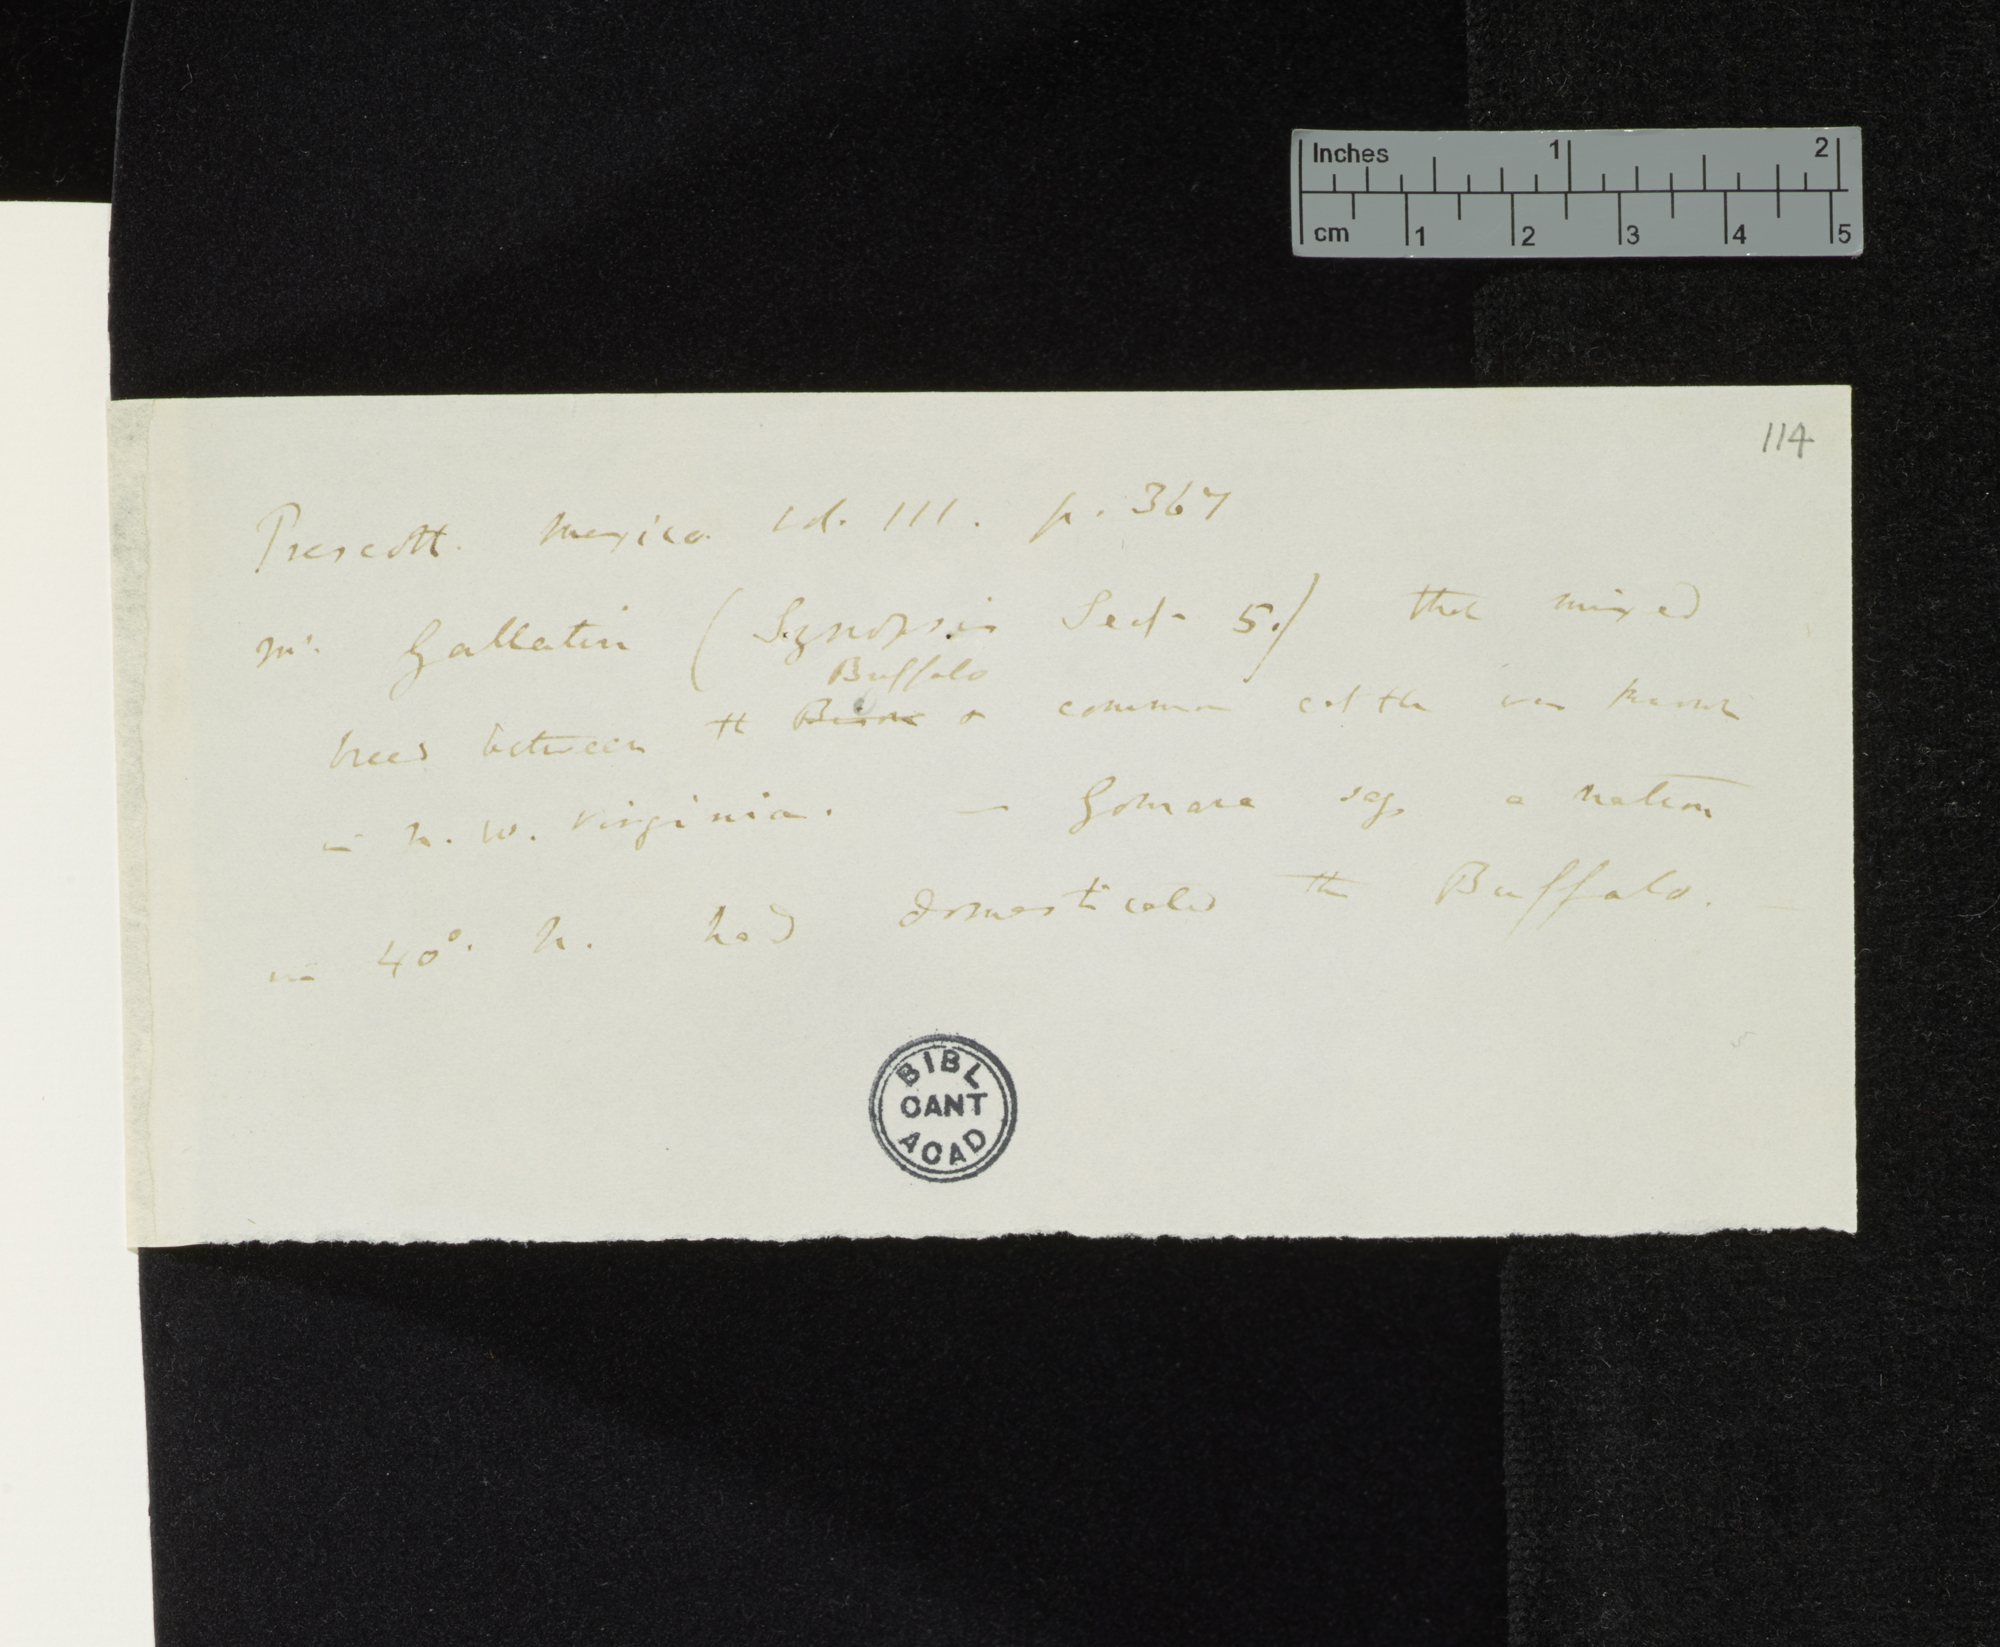 Inches 1 2
cm 1 2 3 4 5
114
Prescott. Mexico. Vol. III. p. 367
Mr. Gallatin (Synopsis Sect 5.) that mixed
Buffalo
breed between the Bison & common cattle was known
in N. W. Virginia. — Gomara says a nation
in 40°. N. had domesticated the Buffalo. —
BIBL
CANT
ACAD